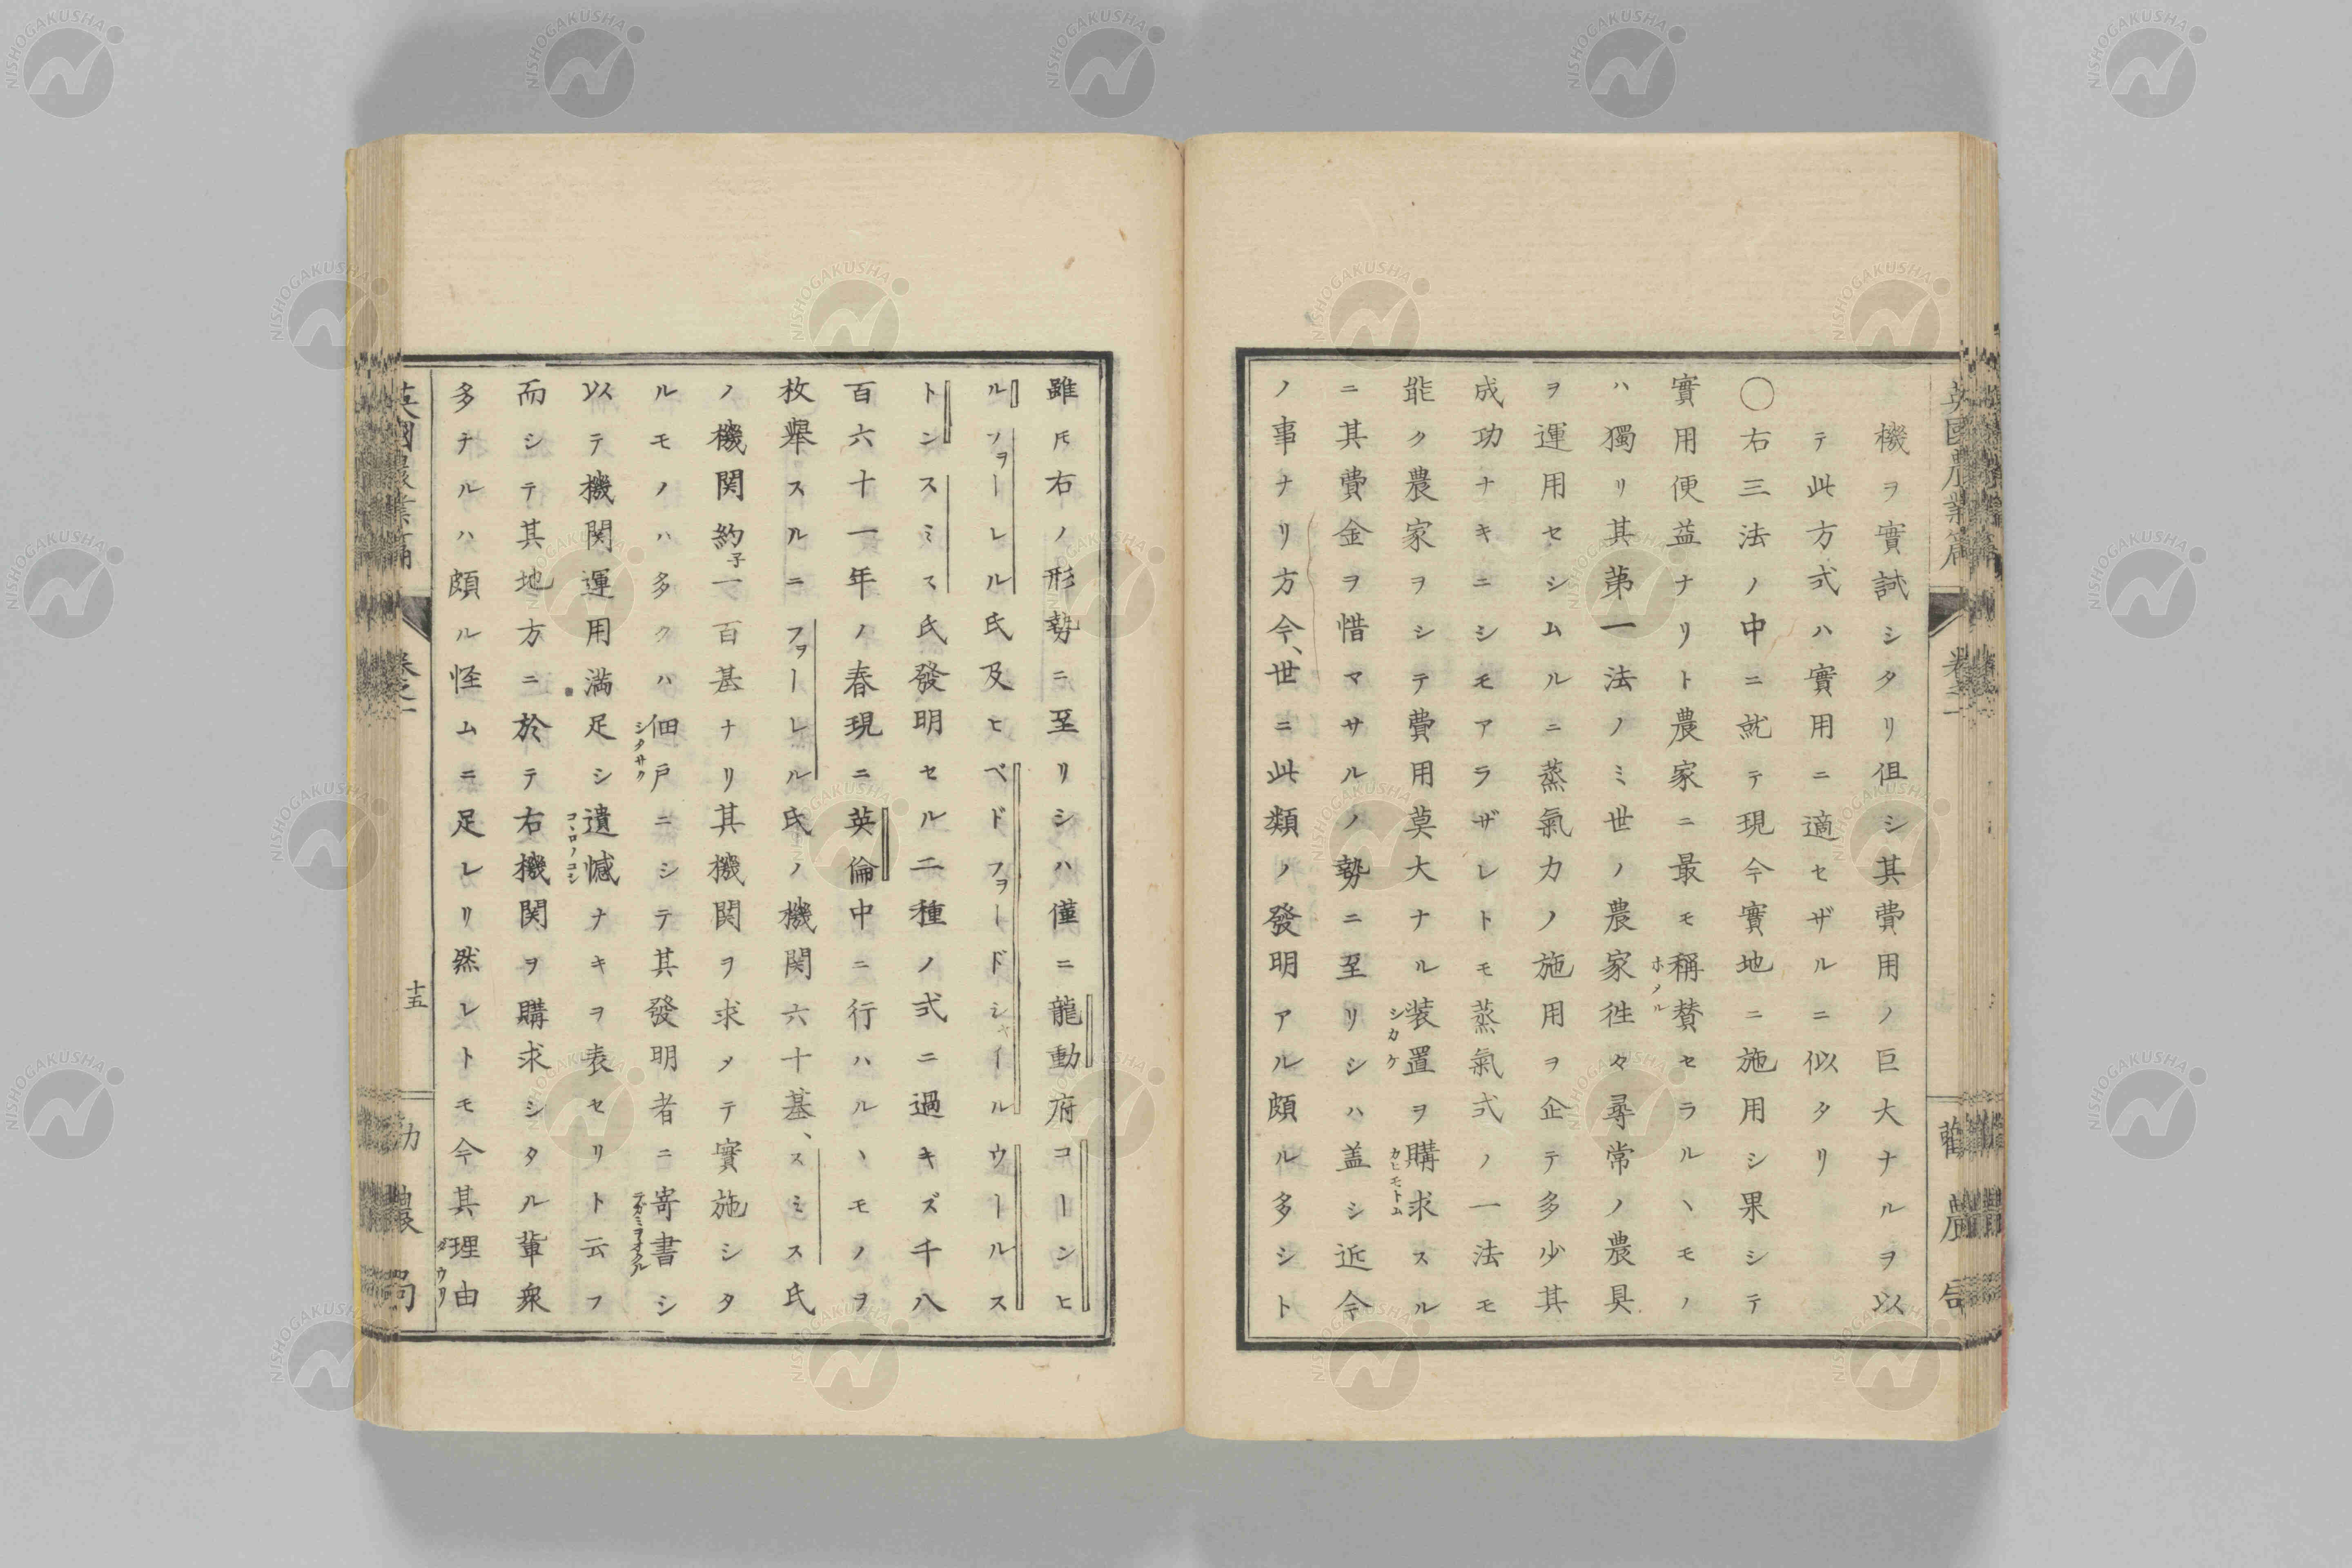 機ヲ實試シタリ但シ其費用ノ巨大ナルヲ以
テ此方式ハ實用ニ適セザルニ似タリ
〇右三法ノ中ニ就テ現今實地ニ施用シ果シテ
實用便益ナリト農家ニ最モ稱賛セラルヽモノ
ホメル
ハ獨リ其第一法ノミ世ノ農家徃々尋常ノ農具
ヲ運用セシムルニ蒸氣力ノ施用ヲ企テ多少其
成功ナキニシモアラザレトモ蒸氣式ノ一法モ
能ク農家ヲシテ費用莫大ナル装置ヲ購求スル
シカケ
カヒモトム
ニ其費金ヲ惜マサルノ勢ニ至リシハ盖シ近今
ノ事ナリ方今、世ニ此類ノ發明アル頗ル多シト
雖𪜈右ノ形勢ニ至リシハ僅ニ龍動府コーンヒ
ルフヲーレル氏及ヒベドフヲードシャイールウールス
トンスミス氏發明セル二種ノ式ニ過キズ千八
百六十一年ノ春現ニ英倫中ニ行ハルヽモノヲ
枚舉スルニフヲーレル氏ノ機関六十基、スミス氏
ノ機関約子一百基ナリ其機関ヲ求メテ實施シタ
ルモノハ多クハ佃戸ニシテ其發明者ニ寄書シ
シタサク
テガミヲオクル
以テ機関運用満足シ遺憾ナキヲ表セリト云フ
コヽロノコシ
而シテ其地方ニ於テ右機関ヲ購求シタル輩衆
多ナルハ頗ル怪ムニ足レリ然レトモ今其理由
英國農業篇
卷之一
十五
勸農局
NISHOGAKUSHA